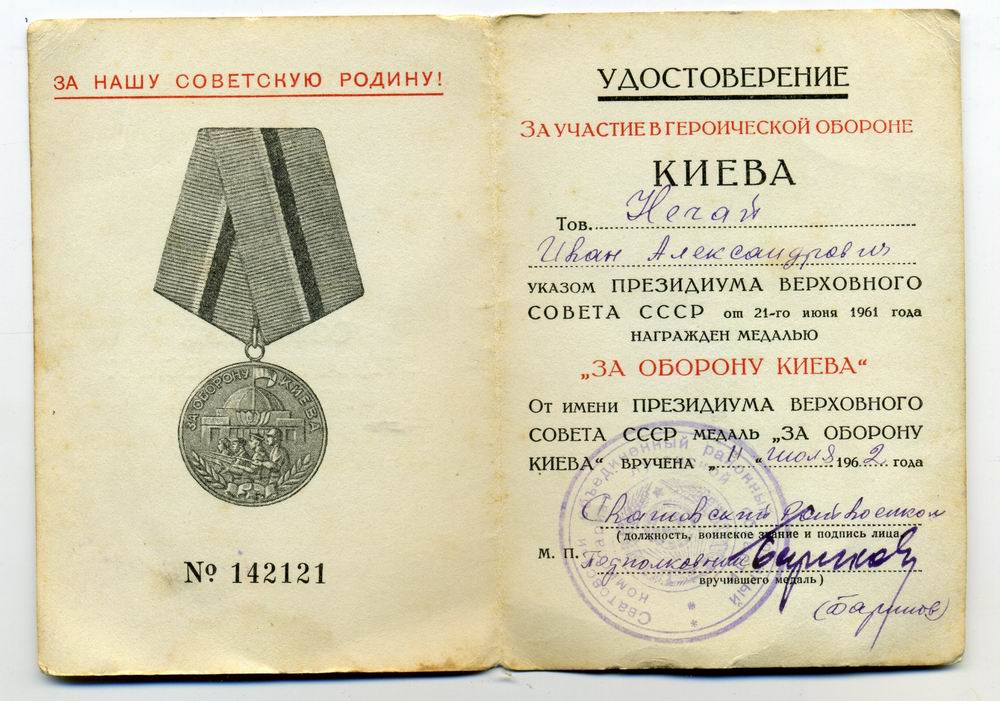 ЗА НАШУ СОВЕТСКУЮ РОДИНУ!
ЗА ОБОРОНУ КИЕВА
№ 142121
УДОСТОВЕРЕНИЕ
ЗА УЧАСТИЕ В ГЕРОИЧЕСКОЙ ОБОРОНЕ
КИЕВА
Тов. Нечай
Иван Александрович
УКАЗОМ ПРЕЗИДИУМА ВЕРХОВНОГО
СОВЕТА СССР от 21-го июня 1961 года
НАГРАЖДЕН МЕДАЛЬЮ
„ЗА ОБОРОНУ КИЕВА“
ОТ ИМЕНИ ПРЕЗИДИУМА ВЕРХОВНОГО
СОВЕТА СССР МЕДАЛЬ „ЗА ОБОРОНУ
КИЕВА“ ВРУЧЕНА „11“ июля 1962 года
Сватовский райвоенком
(должность, воинское звание и подпись лица,
М. П. Подполковник
вручившего медаль)
(Баринов)